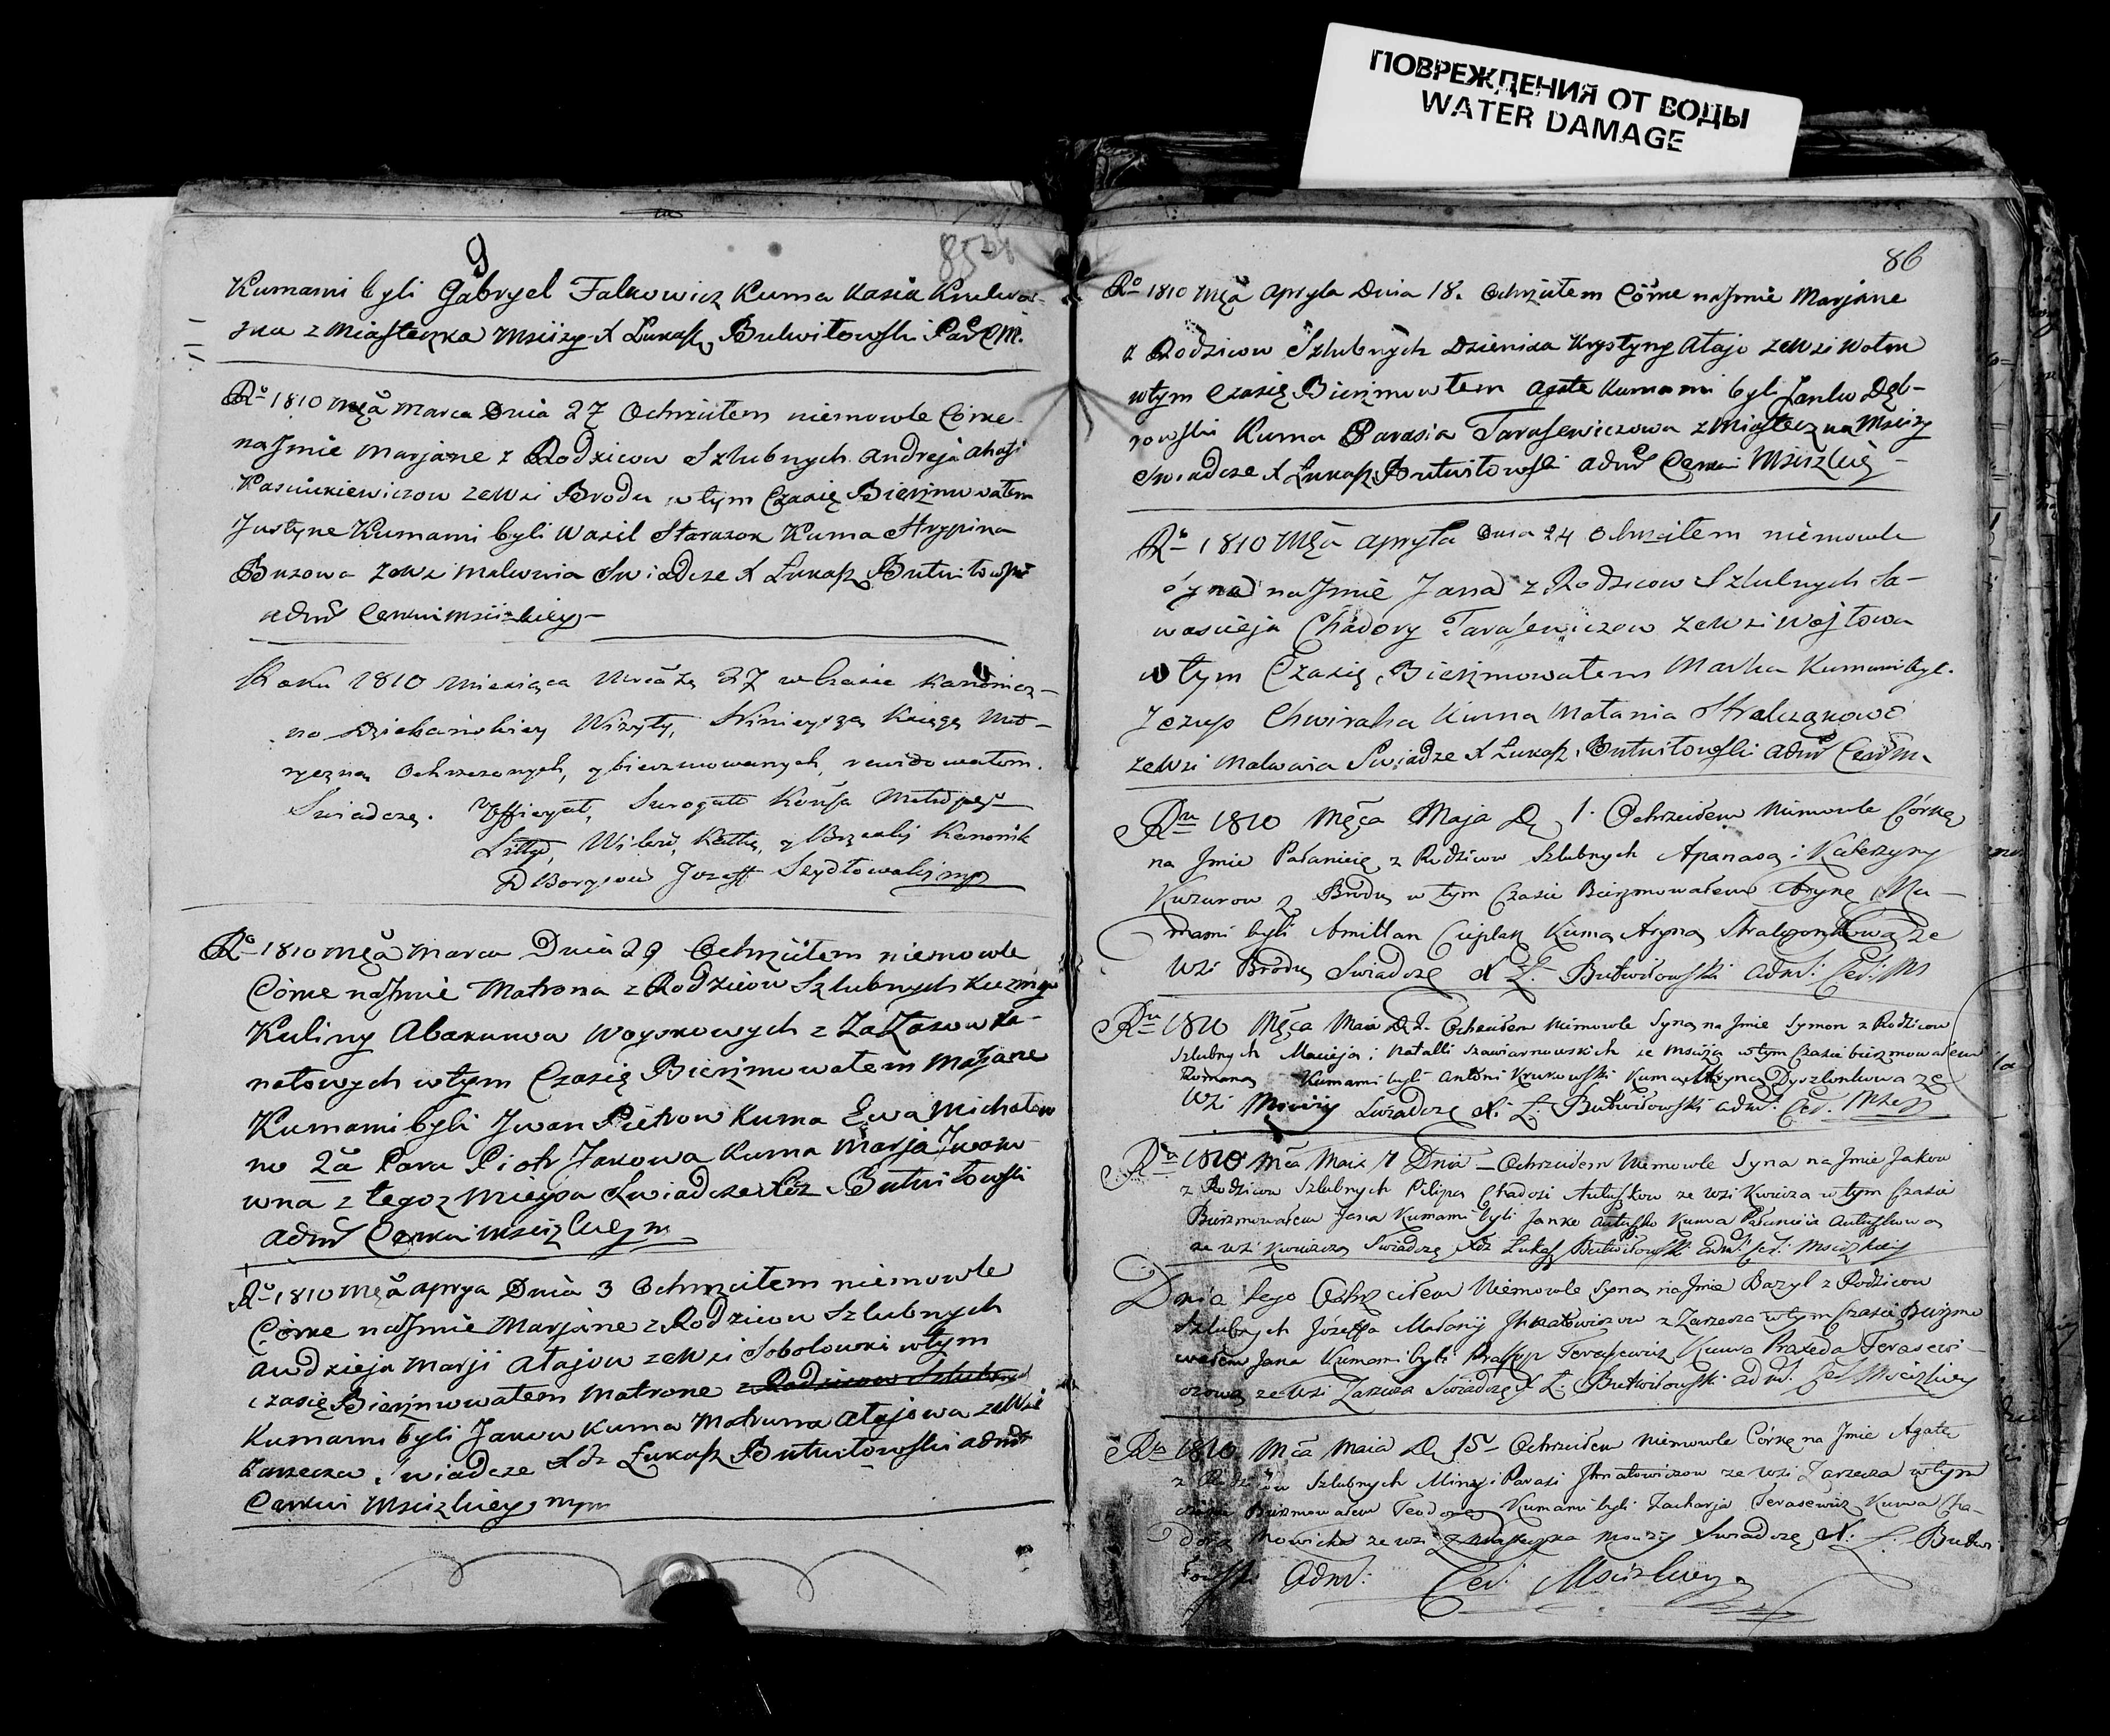 ПОВРЕЖДЕНИЯ ОТ ВОДЫ
WATER DAMAGE
9
85
Kumami byli Gabryel Falkowicz Kuma Kasia
z Miasteczka Mscizy X Łukasz Butwiłowski
Ro 1810 Mca Marca Dnia 27 Ochrzciłem niemowle Córke
na Jmie Marjane z Rodzicow Szlubnych Andreja Ahafi
zewsi Brodu w tym Czasię Bierzmowałem
Justyne Kumami byli Wasil Kuma
Buzowa zewsi Malwwia Swiadcze X Łukasz Butwiłowski
admr Cerkwi Mscizkiey
Roku 1810 Miesiąca Marca 27 w Czasie Kanonicz-
no Dziekańskiey Wizyty, Ninieyszą Księgę Met-
ryczną Ochrzczonych, y bierzmowanych, rewidowałem.
Swiadczę. Officyał, Surogatt
Kanonik
D Borysow Jozeff Szydłowski mp
Ro 1810 Mca Marca Dnia 29 Ochrzciłem niemowle
Córke na Jmie Matrona z Rodziców Szlubnych Kuzmy
Kuliny Abakumwa Woyskowych z
w tym Czasię Bierzmowałem Marjane
Kumami byli Jwan Pietrow Kuma Ewa Michałow
no 2a Para Piotr Jakowa Kuma Marja Jwano
wna z tegoz Mieysca Swiadcze Xdz Butwiłowski
admr Cerkwi Mscizkiey m
Ro 1810 Mca Aprya Dnia 3 Ochrzciłem niemowle
Córke na Jmie Marjane z Rodzicow Szlubnych
Andzieja Marji Atajow zewsi Sobolowki w tym
czasię Bierzmwwałem Matrone z Rodzicow Szlubnych
Kumami byli Jakow Kuma Matruna Atajowa zewsi
Zarzecza Swiadcze Xdz Łukasz Butwiłowski admr
Cerkwi Mscizkiey mpm
86
Ro 1810 Mca Apryla Dnia 18. Ochrzciłem Córke na Jmie Marjane
z Rodzicow Szlubnych Dzienisa Krystyny Atajo zewsi
w tym Czasię Bierzmowłem Agate Kumami byli Janko Dąb-
rowski Kuma Parasia Tarasewiczowa z Miasteczka Mscizy
Swiadcze X Łukasz Butwiłowski admr Cerkwi Mscizkiey
Ro 1810 Mca Apryla Dnia 24 Ochrzciłem niemowle
Syna na Jmie Jana z Rodzicow Szlubnych Sa-
wascieja Chadory Tarasewiczow zewsi Wojtowa
w tym Czasię Bierzmowałem Marka Kumami byl.
Kuma Matania
zewsi Malwwia Swiadze X Łukasz Butwiłowski admr
Ru 1810 Męca Maja D 1. Ochrzciłem Niemowle Córkę
na Jmie Pałanieię z Rodzicow Szlubnych Apanasa i Katerzyny
z Brodu w tym Czasie Bierzmowałem Arynę Ku-
mami byli Amillan Cieplak Kuma Aryna ze
Wsi Brodu Swiadczę X Ł. Butwiłowski Admr: Cer: Ms
Ru 1810 Męca Maia D 2. Ochrzciłem Niemowle Syna na Jmie Symon z Rodzicow
Szlubnych Macieja i Natalli Szawiarnowskich ze Mscizy w tym Czasie bierzmowałem
Romana Kumami byli Antoni Krukowski Kuma ze
Wsi Mscizy Swiadczę X. Ł. Butwiłowski admr: Cer.
Ru 1810 Mca Maia 7 Dnia – Ochrzciłem Niemowle Syna na Jmie Jakow
z Rodzicow Szlubnych Pilipa Chadosi Autuszkow ze wsi w tym Czasie
Bierzmowałem Jana Kumami byli Janko Autuszko Kuma Pałanieia Autuszkowa
ze wsi Swiadczę Xdz Łukasz Butwiłowski Admr: Cer: Msciżkiey
Dnia tego Ochrzciłem Niemowle Syna na Jmie Bazyl z Rodzicow
Szlubnych Józeffa Małanij Jhnatowiczow z Zarzecza w tym Czasie Bierzmo
wałem Jana Kumami byli Prakop Terasewicz Kuma Praxeda Terasewi-
czowa ze wsi Zarzecza Swiadczę X Ł: Butwiłowski admr: Cer Msciżkiey
Ru 1810 Mca Maia D 15 – Ochrzciłem Niemowle Córkę na Jmie Agata
z Rodzicow Szlubnych Miny i Parasi Jhnatowiczow ze wsi Zarzecza w tym
Czasie Bierzmowałem Teodorę Kumami byli Zacharja Terasewicz Kuma Cha-
dora Nowicka ze wsi z Miasteczka Mscizy Swiadczę X. Ł. Butwi
łowski Admr: Cer. Msciżkiey